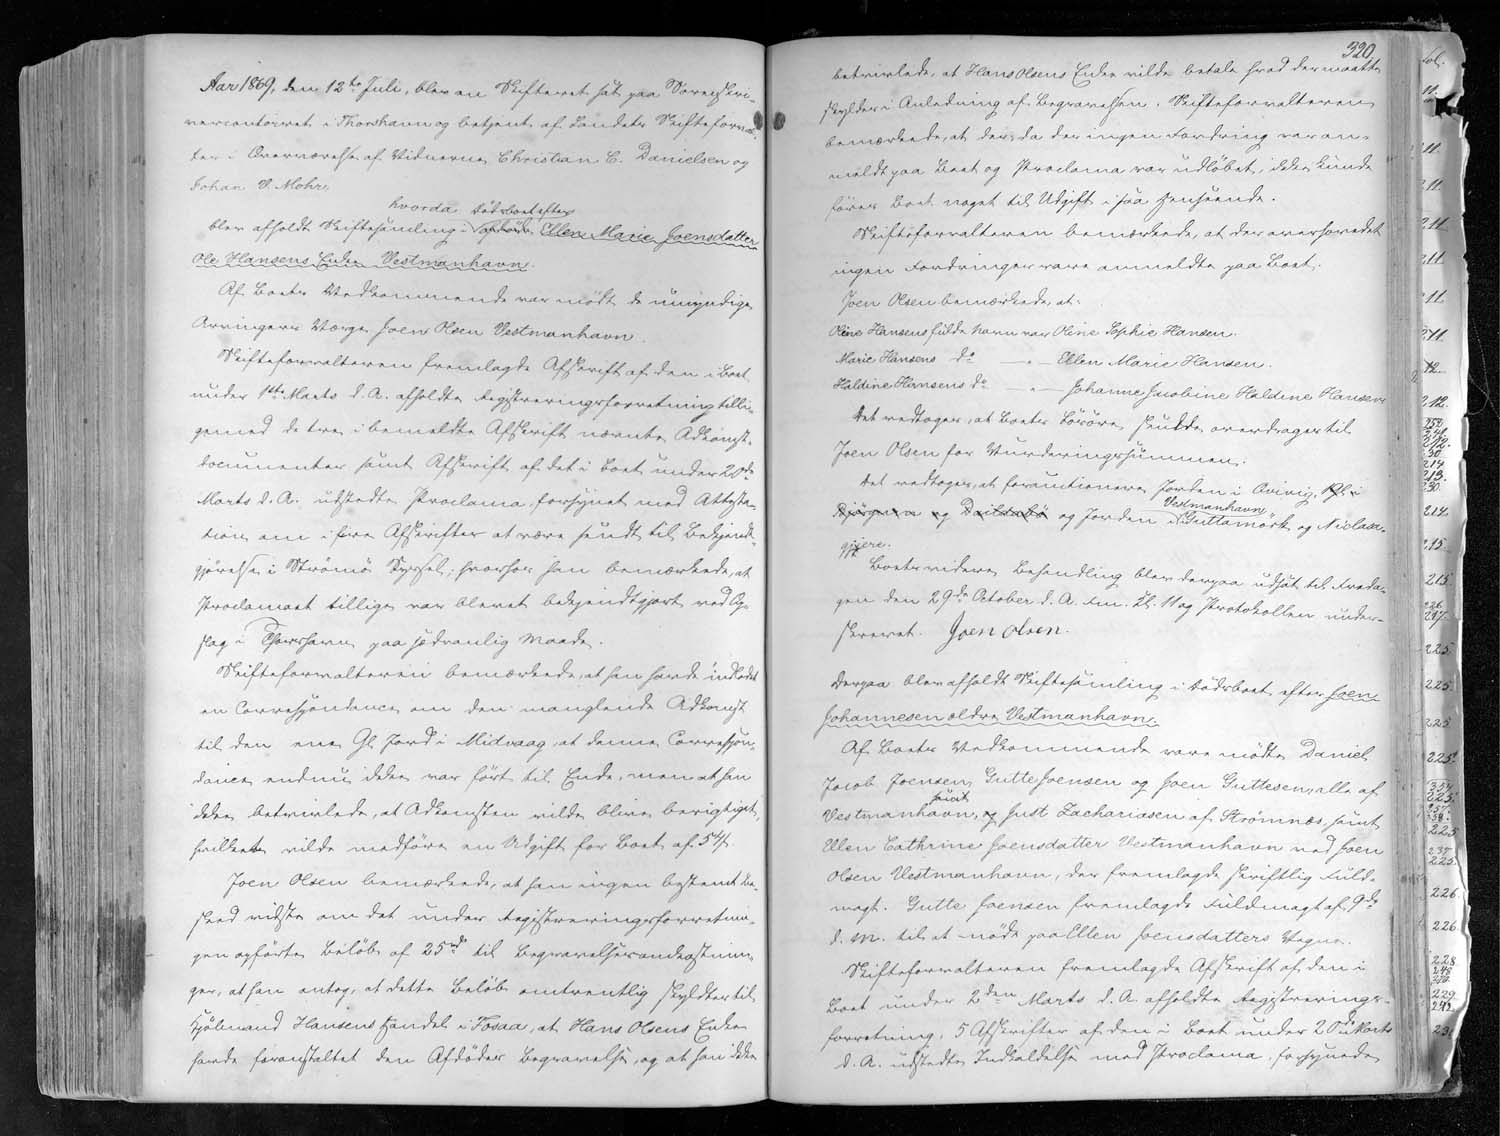 Aar 1869, den 12te Juli, blev en Skifteret sat paa Sorenskri-
vercontoiret i Thorshavn og betjent af Landets Skifteforval-
ter i Overværelse af Vidnerne Christian C. Danielsen og
Johan V. Mohr,
hvorda Dødsboet efter
blev afholdt Skiftesamling i Ellen Marie Joensdatter
Ole Hansens Enke Vestmanhavn.
Af Boets Vedkommende var mødt de umyndige
Arvingers Værge Joen Olsen Vestmanhavn.
Skifteforvalteren fremlagde Afskrift af den i Boet
under 1ste Marts d. A. afholdte Registreringsforretning tilli-
gemed de tre i bemeldte Afskrift nævnte Adkomst-
documenter samt Afskrift af det i Boet under 20de
Marts d. A. udstedte Proclama, forsynet med Attesta-
tion om i fire Afskrifter at være sendt til Bekjendt-
gjørelse i Strømø Syssel; hvorhos han bemærkede, at
Proclamaet tillige var blevet bekjendtgjort ved Op-
slag i Thorshavn paa sædvanlig Maade.
Skifteforvalteren bemærkede, at han havde indledet
en Correspondance om den manglende Adkomst
til den ene Gl. Jord i Midvaag, at denne Correspon-
dance endnu ikke var ført til Ende, men at han
ikke betvivlede, at Adkomsten vilde blive berigtiget,
hvilket vilde medføre en Udgift for Boet af 5 4/
Joen Olsen bemærkede, at han ingen bestemt Be-
sked vidste om det under Registreringsforretnin-
gen opførte Beløb af 25 til Begravelsesomkostnin-
ger, at han antog, at dette Beløb omtrentlig skyldtes til
Hjølmand Hansens Handel i Fosaa, at Hans Olsens Enke
havde foranstaltet den Afdødes Begravelse, og at han ikke
320.
betvivlede, at Hans Olsens Enke vilde betale hvad der maatte
skyldes i Anledning af Begravelsen. Skifteforvalteren
bemærkede, at der, da der ingen Fordring var an-
meldt paa Boet og Proclama var udløbet, ikke kunde
føres Boet noget til Udgift i saa Henseende.
Skifteforvalteren bemærkede, at der overhovedet
ingen Fordringer vare anmeldte paa Boet.
Joen Olsen bemærkede, at:
Oline Hansens fulde Navn var Oline Sophie Hansen.
Marie Hansens do — " — Ellen Marie Hansen.
Haldine Hansens do — " — Johanne Jacobine Haldine Hansen
Det vedtoges, at Boets Løsøre skulde overdrages til
Joen Olsen for Vurderingssummen.
Det vedtoges, at forauctionere Jorden i Qvivig,
Vestmanhavn
og og Jorden i Guttamørk og Niclasa-
gjere.
Boets videre Behandling blev derpaa udsat til Freda-
gen den 29de October d. A. Fm. Kl. 11 og Protokollen under-
skrevet. Joen Olsen.
Derpaa blev afholdt Skiftesamling i Dødsboet efter Joen
Johannesen ældre Vestmanhavn.
Af Boets Vedkommende vare mødte Daniel
Jacob Joensen, Gutte Joensen og Joen Guttesen, alle af
samt
Vestmanhavn, og Just Zachariasen af Strømnæs, samt
Ellen Cathrine Joensdatter Vestmanhavn ved Joen
Olsen Vestmanhavn, der fremlagde skriftlig Fuld-
magt. Gutte Joensen fremlagde Fuldmagt af 9de
d. M. til at møde paa Ellen Joensdatters Vegne.
Skifteforvalteren fremlagde Afskrift af den i
Boet under 2den Marts d. A. afholdte Registrerings-
forretning, 5 Afskrifter af den i Boet under 20de Marts
d. A. udstedte Indkaldelse med Proclama, forsynede